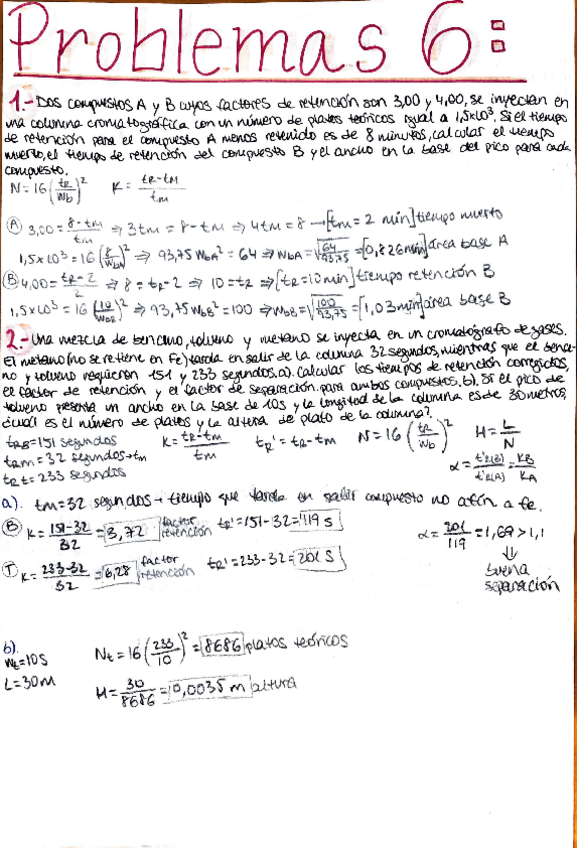 Problemas 6:
1.- Dos compuestos A y B cuyos factores de retención son 3,00 y 4,00, se inyectan en
una columna cromatográfica con un número de platos teóricos igual a 1,5x10³. Si el tiempo
de retención para el compuesto A menos retenido es de 8 minutos, calcular el tiempo
muerto, el tiempo de retención del compuesto B y el ancho en la base del pico para cada
compuesto.
N = 16 (tR/Wb)² K = tR-tM/tm
Ⓐ 3,00 = 8-tM/tm ⇒ 3tm = 8-tM ⇒ 4tM = 8 → [tm = 2 min] tiempo muerto
1,5x10³ = 16 (8/WbA)² ⇒ 93,75 WbA² = 64 ⇒ WbA = √64/93,75 = [0,826 min] área base A
Ⓑ 4,00 = tR-2/2 ⇒ 8 = tR-2 ⇒ 10 = tR ⇒ [tR = 10 min] tiempo retención B
1,5x10³ = 16 (10/WbB)² ⇒ 93,75 WbB² = 100 ⇒ WbB = √100/93,75 = [1,03 min] área base B
2.- Una mezcla de benceno, tolueno y metano se inyecta en un cromatógrafo de gases.
El metano (no se retiene en Fe) tarda en salir de la columna 32 segundos, mientras que el bence-
no y tolueno requieren 151 y 233 segundos. a). Calcular los tiempos de retención corregidos,
el factor de retención y el factor de separación para ambos compuestos, b). Si el pico de
tolueno presenta un ancho en la base de 10s y la longitud de la columna es de 30 metros,
¿cuál es el número de platos y la altura de plato de la columna?.
tRB = 151 segundos K = tR-tm/tm tR' = tR-tm N = 16 (tR/Wb)² H = L/N
tRm = 32 segundos → tm
tRt = 233 segundos α = t'R(B)/t'R(A) = KB/KA
a). tm = 32 segundos → tiempo que tarda en salir compuesto no afín a fe.
Ⓑ K = 151-32/32 = 3,72 factor retención tR' = 151-32 = 119 s α = 201/119 = 1,69 > 1,1
⇓
Ⓣ K = 233-32/32 = 6,28 factor retención tR' = 233-32 = 201 s buena
separación
b).
Wt = 10s Nt = 16 (233/10)² = 8686 platos teóricos
L = 30m H = 30/8686 = 0,0035 m altura